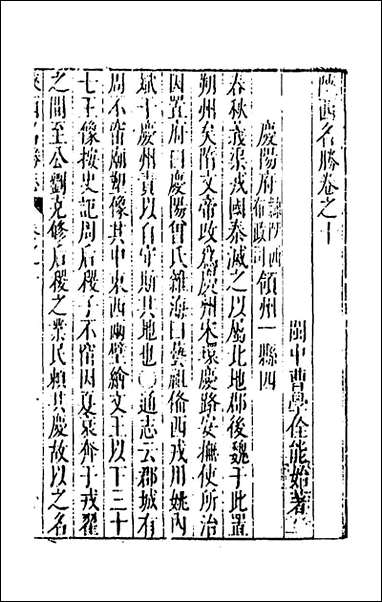 陝西名勝卷之十
閩中曹學佺能始著
慶陽府隸陝西布政司領州一縣四
春秋義渠戎國秦滅之以屬北地郡後魏于此置
朔州矣隋文帝改爲慶州宋環慶路安撫使所治
因置府曰慶陽曾氏雜海曰藝祖俻西戎用姚内
斌于慶州責以自守斯其地也〇通志云郡城有
周不窋廟塑像其中東西兩壁繪文王以下三十
七王像按史記周后稷子不窋因夏衰奔于戎翟
之間至公劉克修后稷之業民頼其慶故以之名
陝西名勝志 卷之十